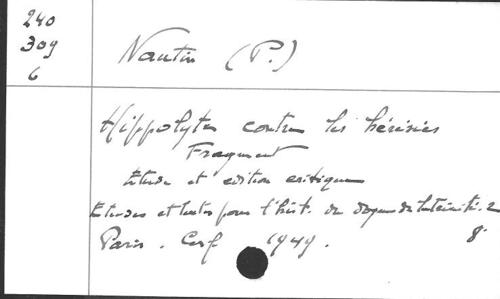 240
309
6
Nautin (P.)
Hippolyte contre les hérésies
Fragment
Etude et edition critique
Etudes et textes pour l'hist. du dogme de la trinité. 2
Paris. Cerf 1949. 8°